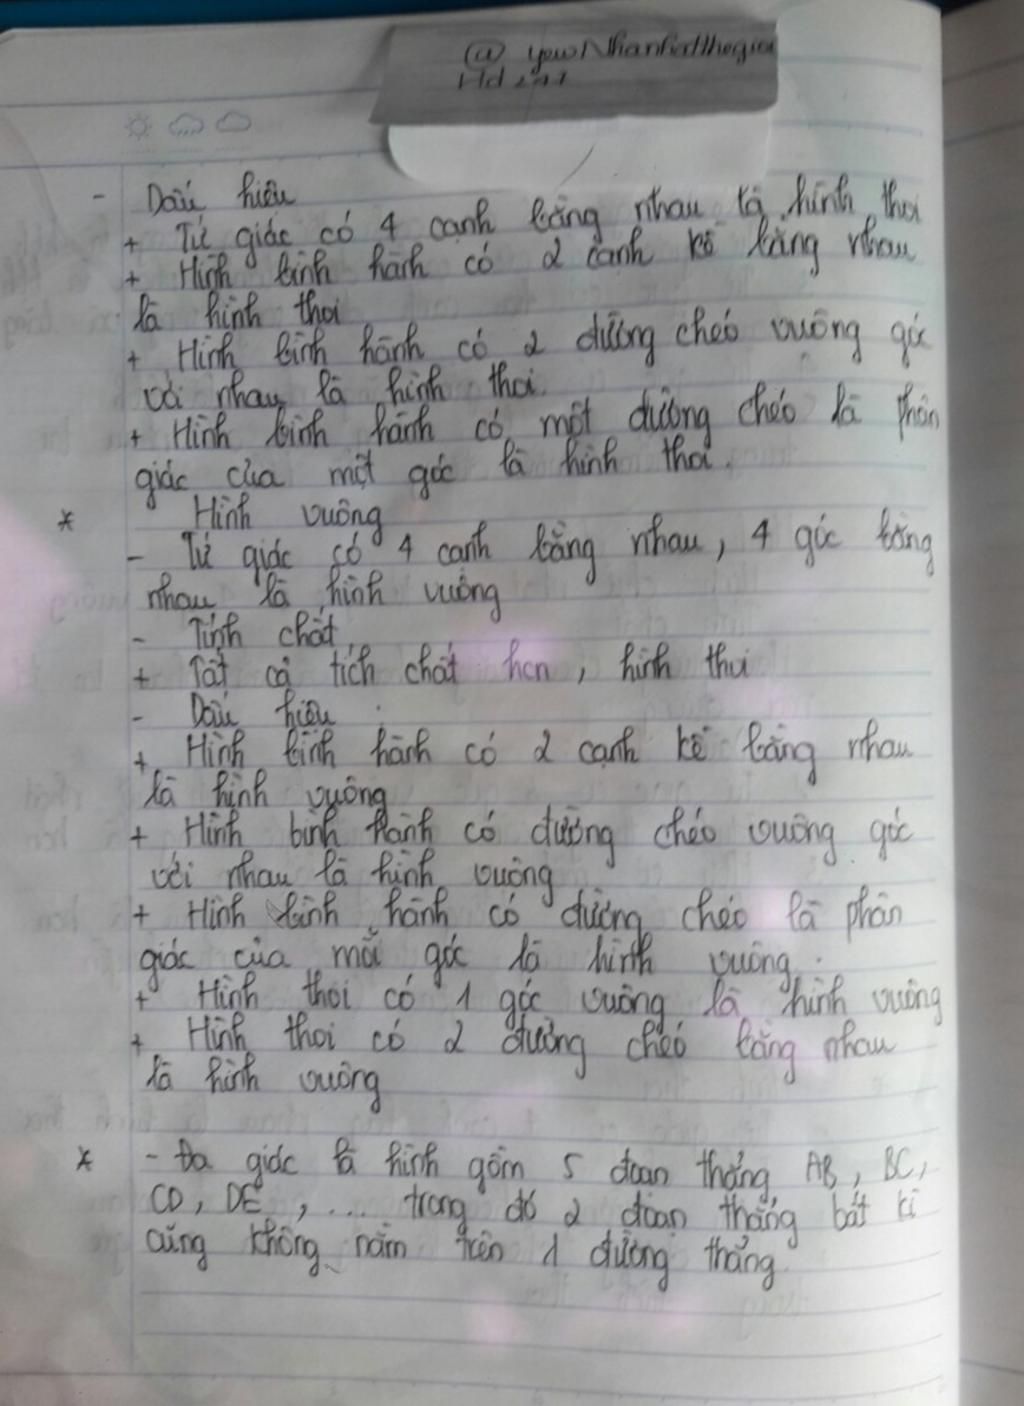 - Dấu hiệu
+ Tứ giác có 4 cạnh bằng nhau là hình thoi
+ Hình bình hành có 2 cạnh kề bằng nhau
là hình thoi
+ Hình bình hành có 2 đường chéo vuông góc
với nhau là hình thoi.
+ Hình bình hành có một đường chéo là phân
giác của một góc là hình thoi.
* Hình vuông
- Tứ giác có 4 cạnh bằng nhau, 4 góc bằng
nhau là hình vuông
- Tính chất
+ Tất cả tích chất hcn, hình thoi
- Dấu hiệu :
+ Hình bình hành có 2 cạnh kề bằng nhau
là hình vuông
+ Hình bình hành có đường chéo vuông góc
với nhau là hình vuông
+ Hình bình hành có đường chéo là phân
giác của mỗi góc là hình vuông.
+ Hình thoi có 1 góc vuông là hình vuông
+ Hình thoi có 2 đường chéo bằng nhau
là hình vuông
* - Đa giác là hình gồm 5 đoạn thẳng AB, BC,
CD, DE, ... trong đó 2 đoạn thẳng bất kì
cũng không nằm trên 1 đường thẳng